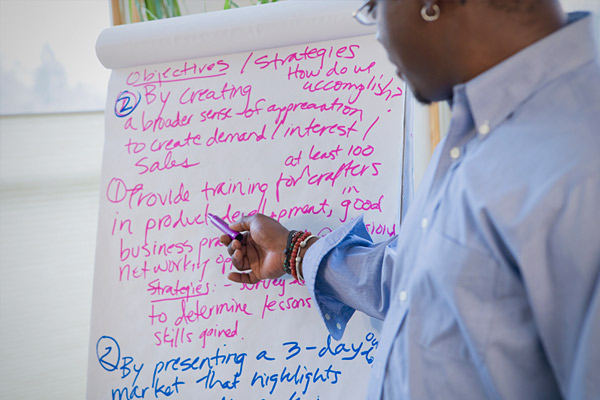 Objectives / Strategies
How do we
accomplish?
② By creating
a broader sense of appreation
to create demand / interest /
Sales
at least 100
① Provide training for crafters
in
in product development, good
business
networkig
Strategies: - survey
to determine lessons
skills gained.
② By presenting a 3-day
market that highlights